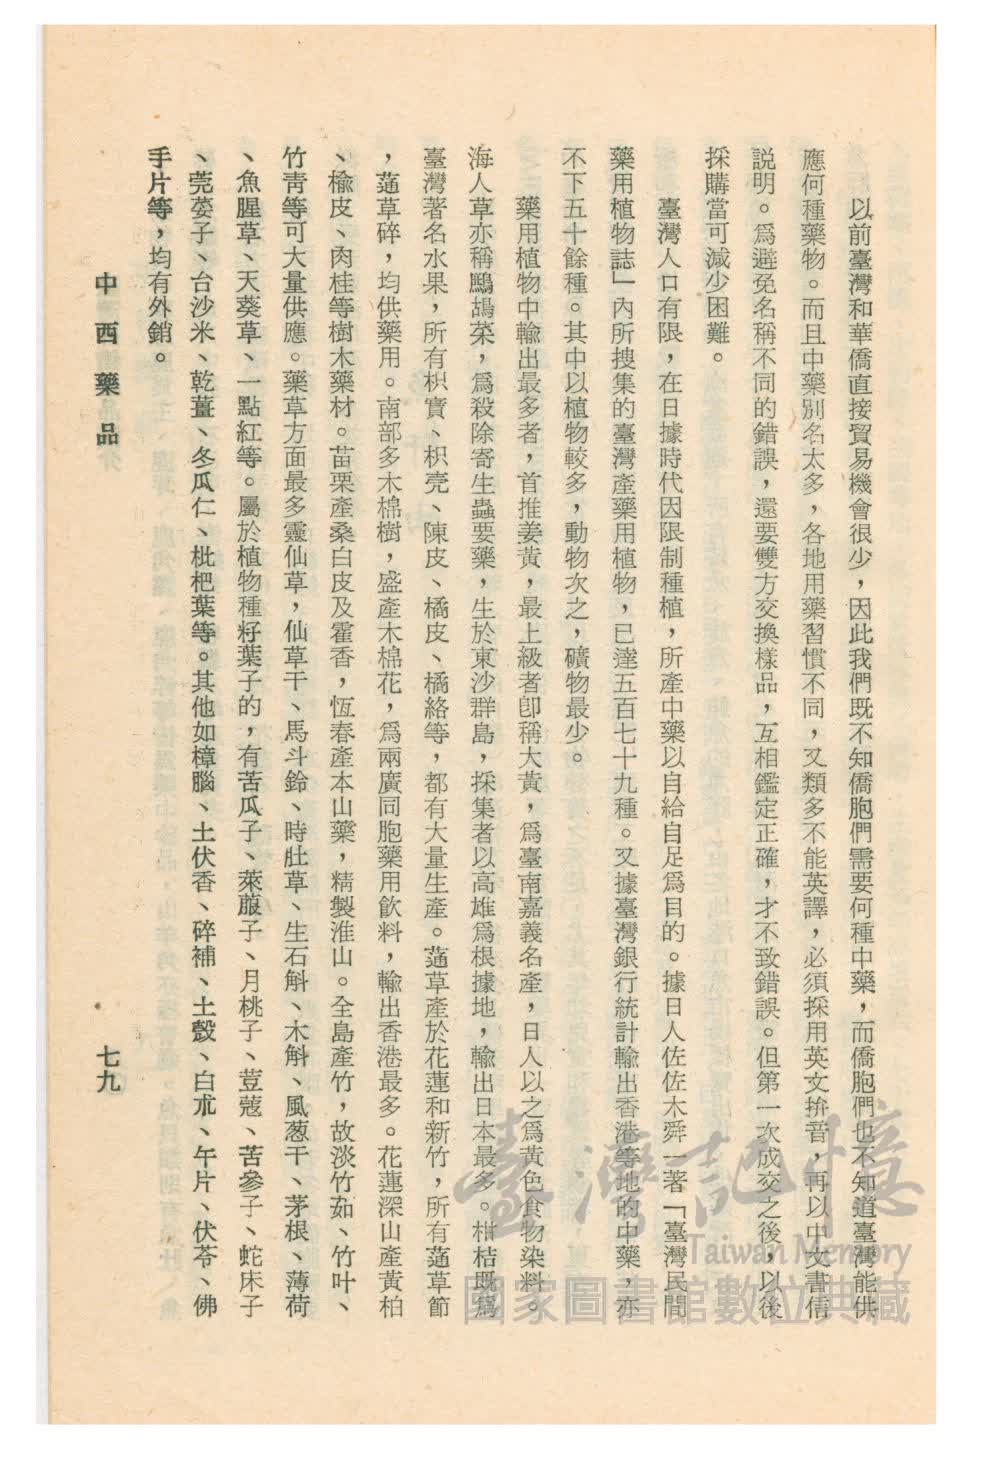 以前臺灣和華僑直接貿易機會很少，因此我們旣不知僑胞們需要何種中藥，而僑胞們也不知道臺灣能供
應何種藥物。而且中藥別名太多，各地用藥習慣不同，又類多不能英譯，必須採用英文拚音，再以中文書信
説明。爲避免名稱不同的錯誤，還要雙方交換樣品，互相鑑定正確，才不致錯誤。但第一次成交之後，以後
採購當可減少困難。
臺灣人口有限，在日據時代因限制種植，所產中藥以自給自足爲目的。據日人佐佐木舜一著「臺灣民間
藥用植物誌」內所搜集的臺灣產藥用植物，已達五百七十九種。又據臺灣銀行統計輸出香港等地的中藥，亦
不下五十餘種。其中以植物較多，動物次之，礦物最少。
藥用植物中輸出最多者，首推姜黃，最上級者卽稱大黃，爲臺南嘉義名產，日人以之爲黃色食物染料。
海人草亦稱鷓鴣菜，爲殺除寄生蟲要藥，生於東沙群島，採集者以高雄爲根據地，輸出日本最多。柑桔旣爲
臺灣著名水果，所有枳實、枳壳、陳皮、橘皮、橘絡等，都有大量生產。蓪草產於花蓮和新竹，所有蓪草節
，蓪草碎，均供藥用。南部多木棉樹，盛產木棉花，爲兩廣同胞藥用飲料，輸出香港最多。花蓮深山產黃柏
、楡皮、肉桂等樹木藥材。苗栗產桑白皮及霍香，恆春產本山藥，精製淮山。全島產竹，故淡竹茹、竹叶、
竹靑等可大量供應。藥草方面最多靈仙草，仙草干、馬斗鈴、時壯草、生石斛、木斛、風葱干、茅根、薄荷
、魚腥草、天葵草、一點紅等。屬於植物種籽葉子的，有苦瓜子、萊菔子、月桃子、荳蔻、苦參子、蛇床子
、莞荽子、台沙米、乾薑、冬瓜仁、枇杷葉等。其他如樟腦、土伏香、碎補、土㱿、白朮、午片、伏苓、佛
手片等，均有外銷。
中西藥品
七九
臺灣記憶
Taiwan Memory
國家圖書館數位典藏